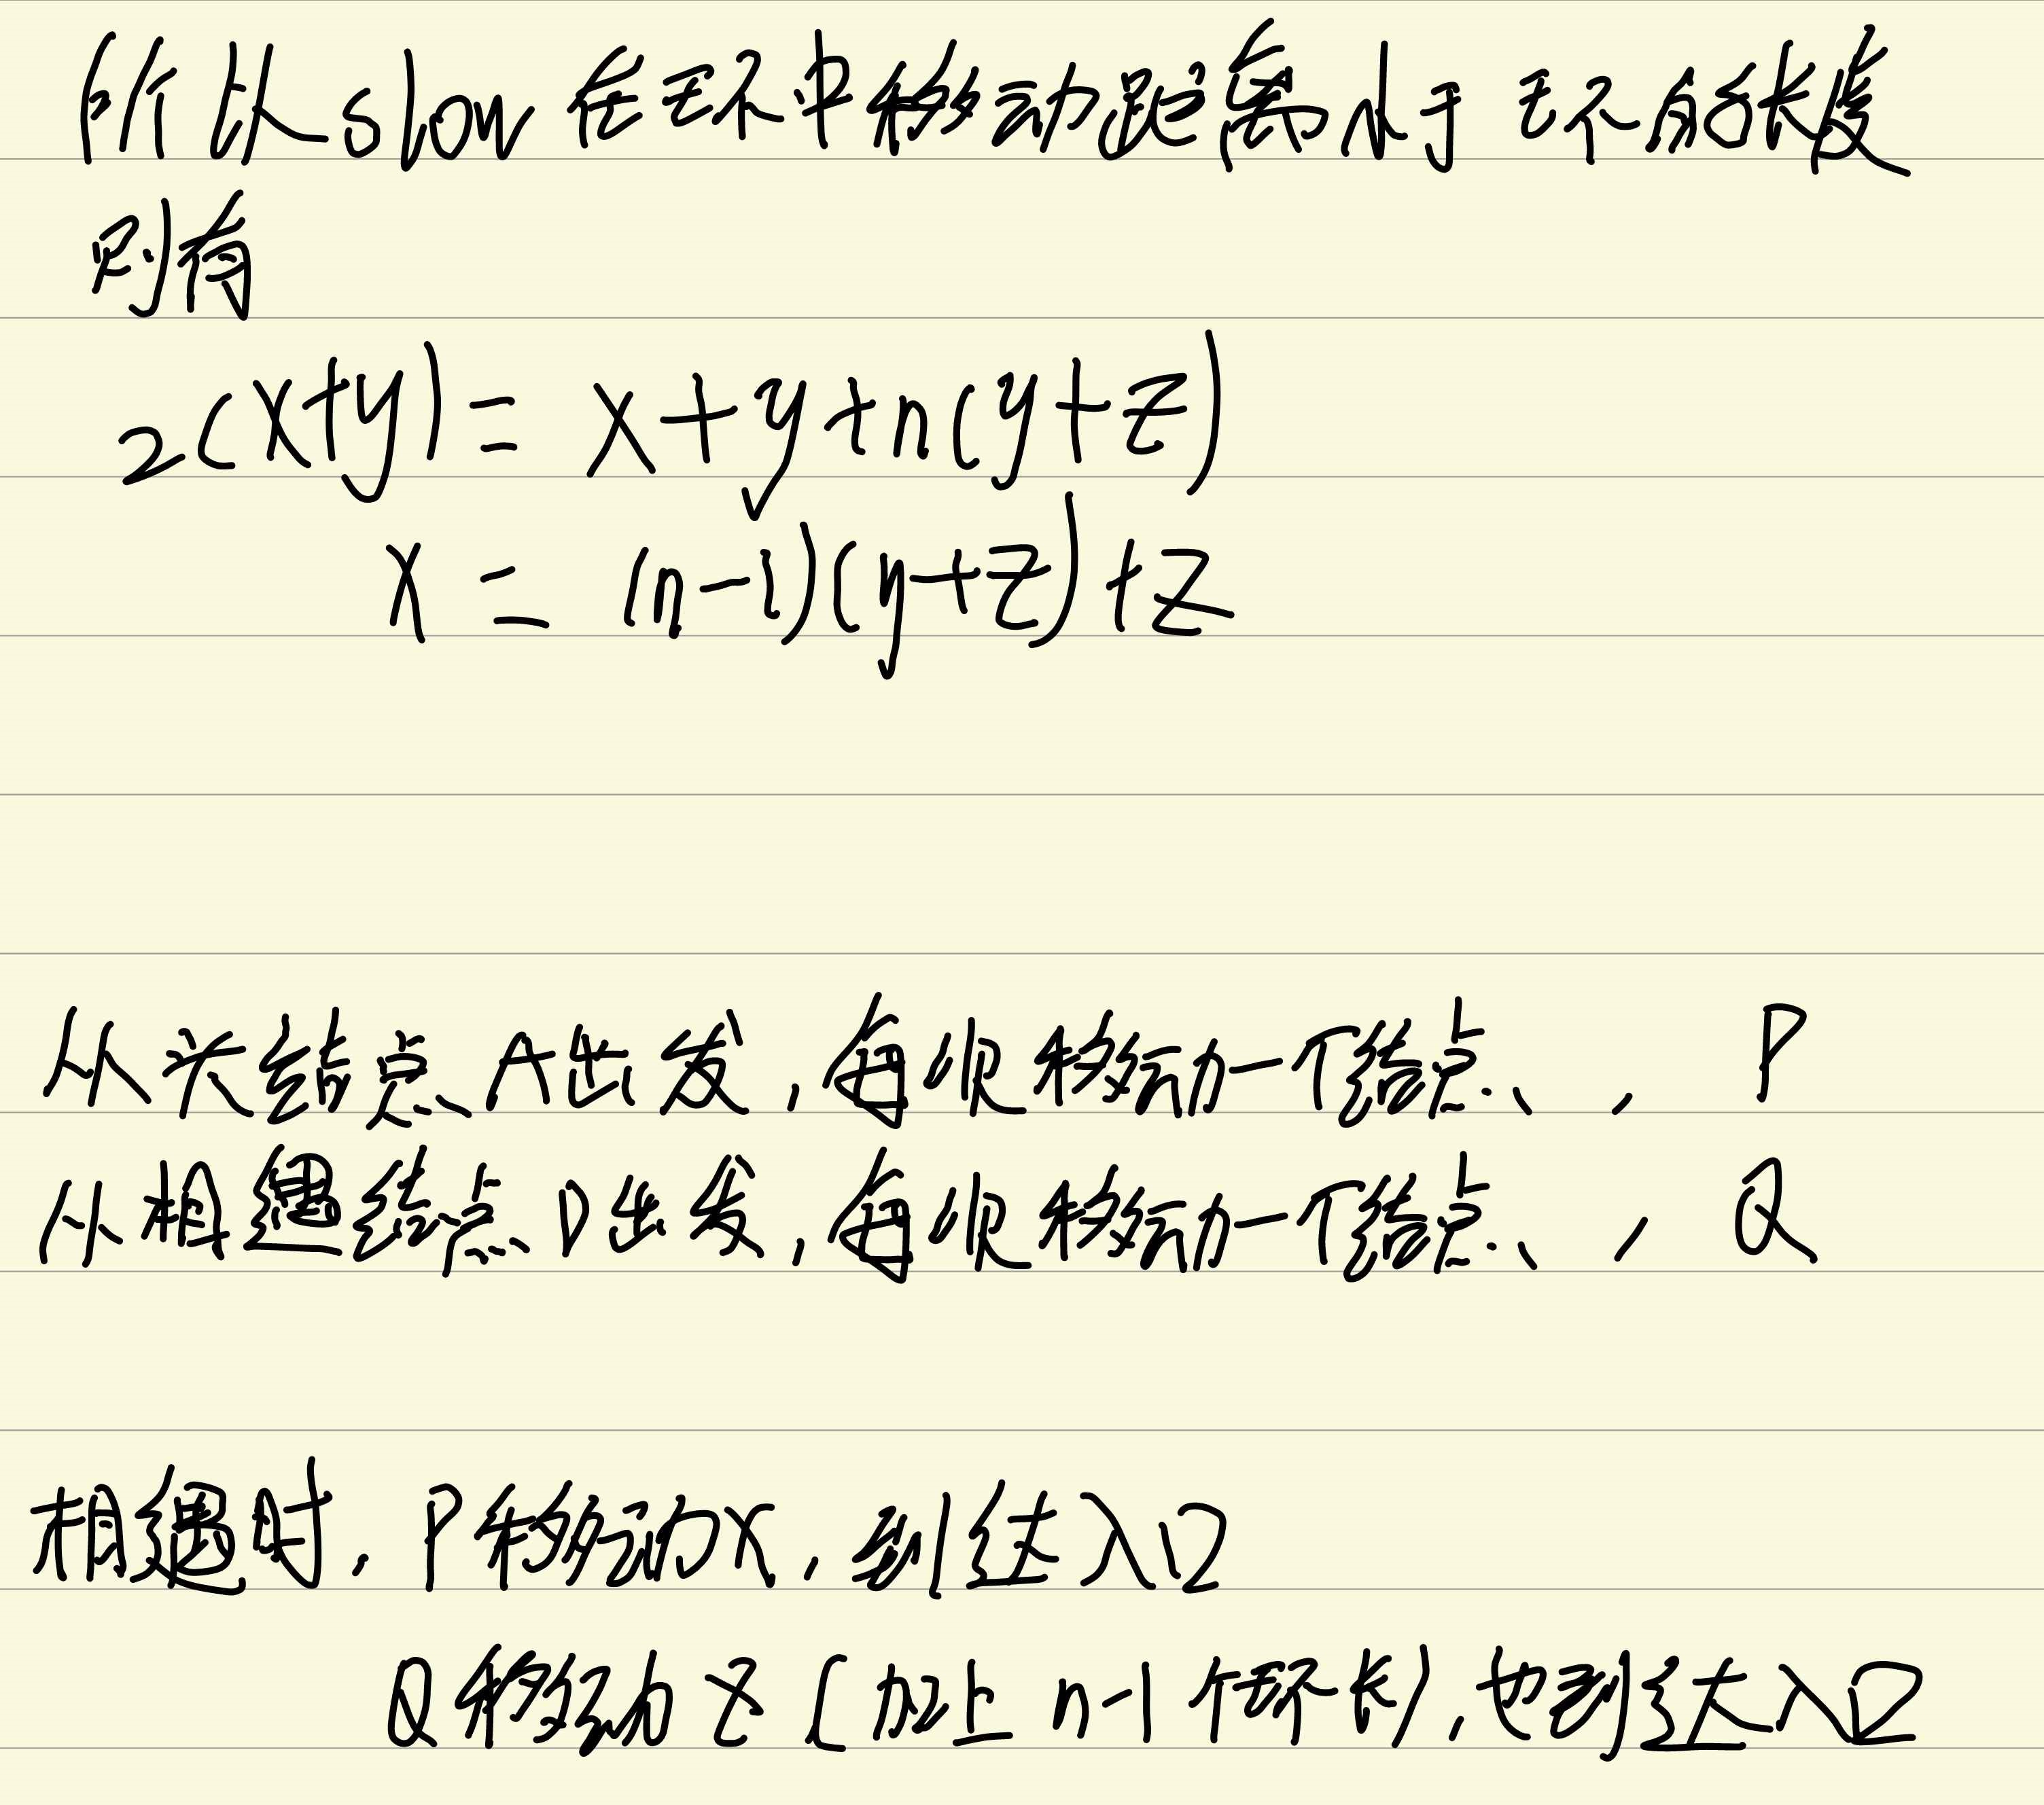 所以slow在环中移动距离小于环的长度
则有
2(x+y)=x+y+n(y+z)
x=(n-1)(y+z)+z
从头结点出发,每次移动一个结点、, P
从相遇结点出发,每次移动一个结点、, Q
相遇时,P移动x,到达入口
Q移动z(加上n-1个环长),也到达入口